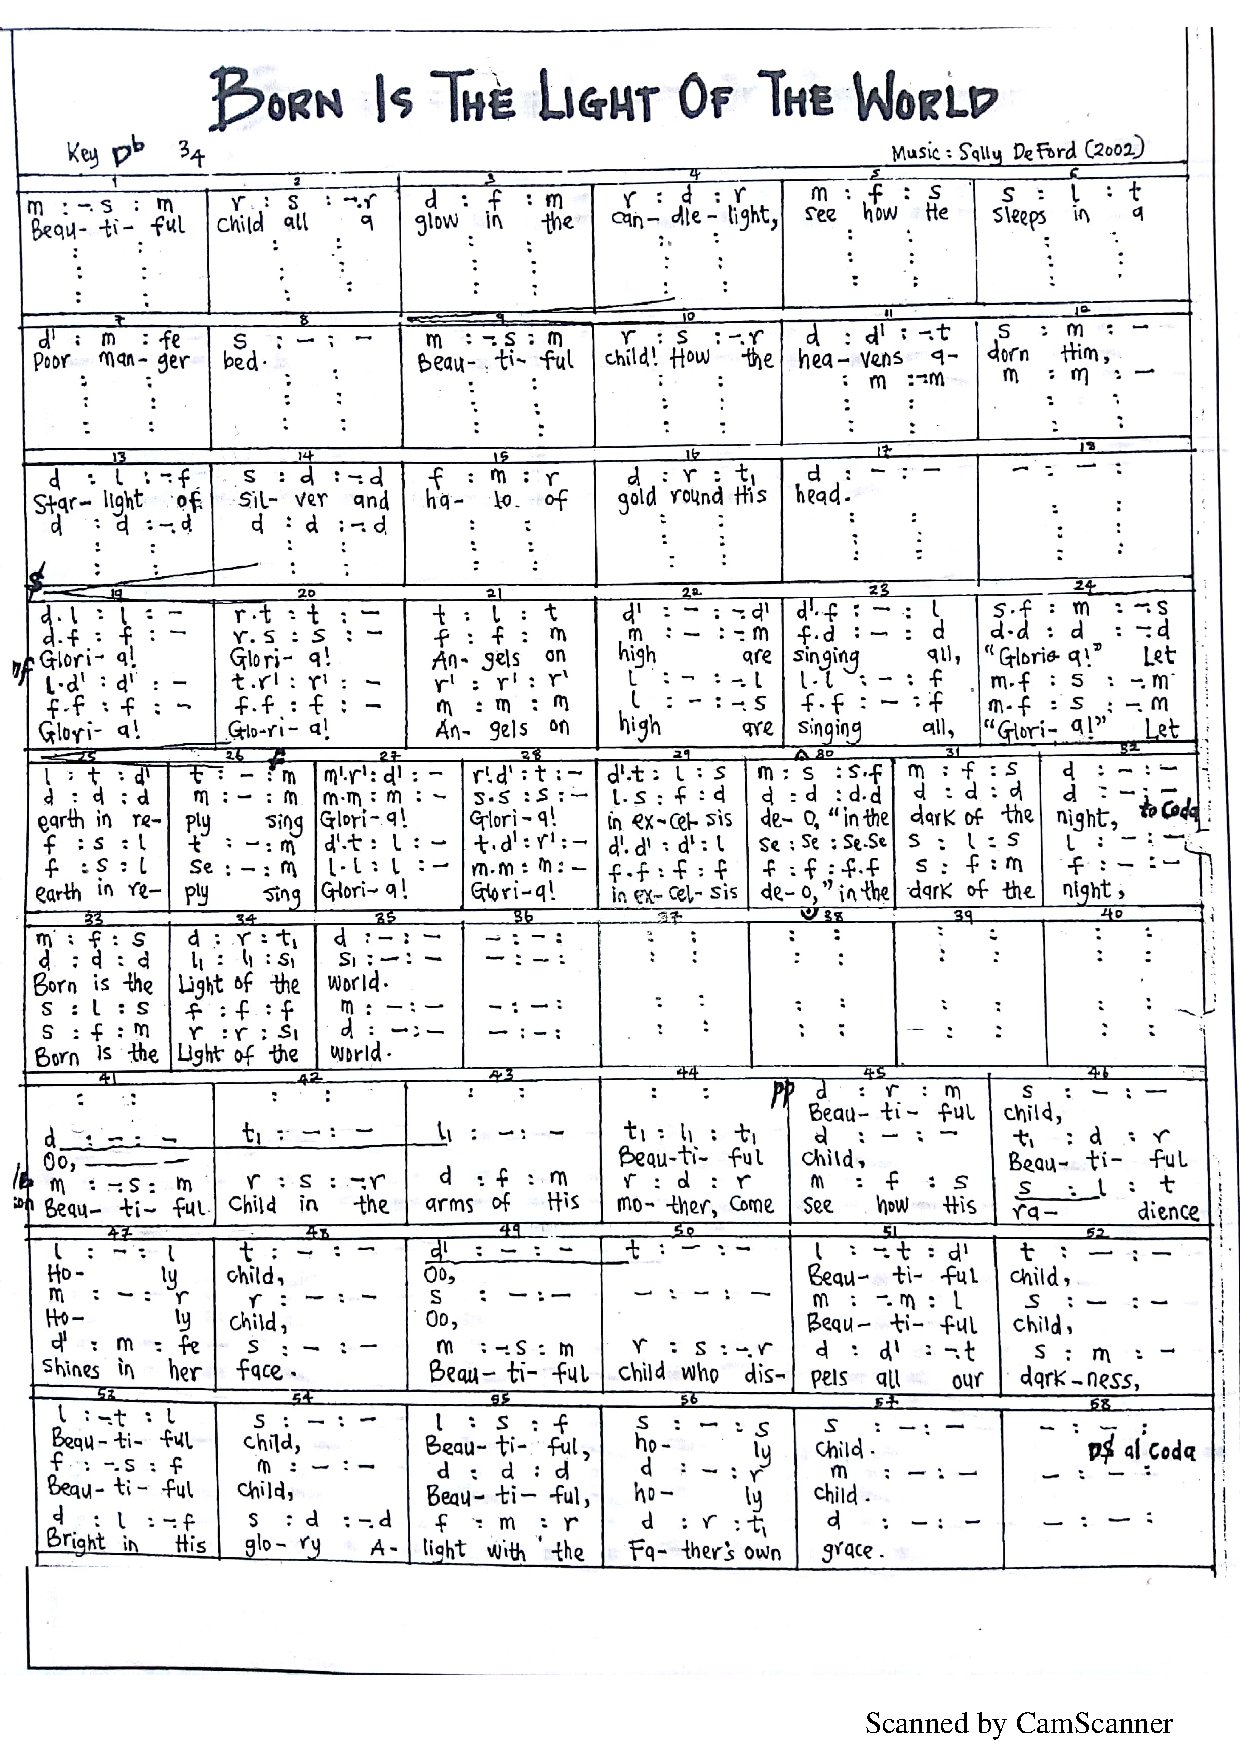 BORN IS THE LIGHT OF THE WORLD
Key Db 3/4
Music: Sally DeFord (2002)
1 2 3 4 5 6
m : -.s : m | r : s : -.r | d : f : m | r : d : r | m : f : s | s : l : t
Beau- ti- ful child all a glow in the can- dle- light, see how He sleeps in a
7 8 9 10 11 12
d' : m : fe | s : - : - | m : -.s : m | r : s : -.r | d : d' : -.t | s : m : -
Poor man- ger bed. Beau- ti- ful child! How the hea- vens a- dorn Him,
: m : -.m | m : m : -
13 14 15 16 17 18
d : l : -.f | s : d : -.d | f : m : r | d : r : t₁ | d : - : - | - : - : -
Star- light of sil- ver and ha- lo of gold round His head.
d : d : -.d | d : d : -.d
19 20 21 22 23 24
d.l : l : - | r.t : t : - | t : l : t | d' : - : -.d' | d'.f : - : l | s.f : m : -.s
d.f : f : - | r.s : s : - | f : f : m | m : - : -.m | f.d : - : d | d.d : d : -.d
Glori- a! Glori- a! An- gels on high are singing all, "Gloria a!" Let
l.d' : d' : - | t.r' : r' : - | r' : r' : r' | l : - : -.l | l.l : - : f | m.f : s : -.m
f.f : f : - | f.f : f : - | m : m : m | l : - : -.s | f.f : - : f | m.f : s : -.m
Glori- a! Glo-ri- a! An- gels on high are singing all, "Glori- a!" Let
25 26 27 28 29 30 31 32
l : t : d' | t : - : m | m'.r' : d' : - | r'.d' : t : - | d'.t : l : s | m : s : s.f | m : f : s | d : - : -
d : d : d | m : - : m | m.m : m : - | s.s : s : - | l.s : f : d | d : d : d.d | d : d : d | d : - : -
to Coda
earth in re- ply sing Glori- a! Glori- a! in ex- cel- sis de- o, "in the dark of the night,
f : s : l | t : - : m | d'.t : l : - | t.d' : r' : - | d'.d' : d' : l | se : se : se.se | s : l : s | l : - : -
f : s : l | se : - : m | l.l : l : - | m.m : m : - | f.f : f : f | f : f : f.f | s : f : m | f : - : -
earth in re- ply sing Glori- a! Glori- a! in ex- cel- sis de- o," in the dark of the night,
33 34 35 36 37 38 39 40
m : f : s | d : r : t₁ | d : - : - | - : - :
d : d : d | l₁ : l₁ : s₁ | s₁ : - : - | - : - :
Born is the Light of the world.
s : l : s | f : f : f | m : - : - | - : - :
s : f : m | r : r : s₁ | d : - : - | - : - :
Born is the Light of the world.
41 42 43 44 45 46
pp d : r : m | s : - : -
Beau- ti- ful child,
d : - : - | t₁ : - : - | l₁ : - : - | t₁ : l₁ : t₁ | d : - : - | t₁ : d : r
Oo, Beau- ti- ful child, Beau- ti- ful
m : -.s : m | r : s : -.r | d : f : m | r : d : r | m : f : s | s : l : t
Beau- ti- ful Child in the arms of His mo- ther, come see how His ra- dience
47 48 49 50 51 52
l : - : l | t : - : - | d' : - : - | t : - : - | l : -.t : d' | t : - : -
Ho- ly child, Oo, Beau- ti- ful child,
m : - : r | r : - : - | s : - : - | - : - : - | m : -.m : l | s : - : -
Ho- ly child, Oo, Beau- ti- ful child,
d' : m : fe | s : - : - | m : -.s : m | r : s : -.r | d : d' : -.t | s : m : -
shines in her face. Beau- ti- ful child who dis- pels all our dark-ness,
53 54 55 56 57 58
l : -.t : l | s : - : - | l : s : f | s : - : s | s : - : - | - : - : -
Beau- ti- ful child, Beau- ti- ful, ho- ly child. D$ al Coda
f : -.s : f | m : - : - | d : d : d | d : - : r | m : - : - | - : - : -
Beau- ti- ful child, Beau- ti- ful, ho- ly child.
d : l : -.f | s : d : -.d | f : m : r | d : r : t₁ | d : - : - | - : - :
Bright in His glo- ry A- light with the Fa- ther's own grace.
Scanned by CamScanner